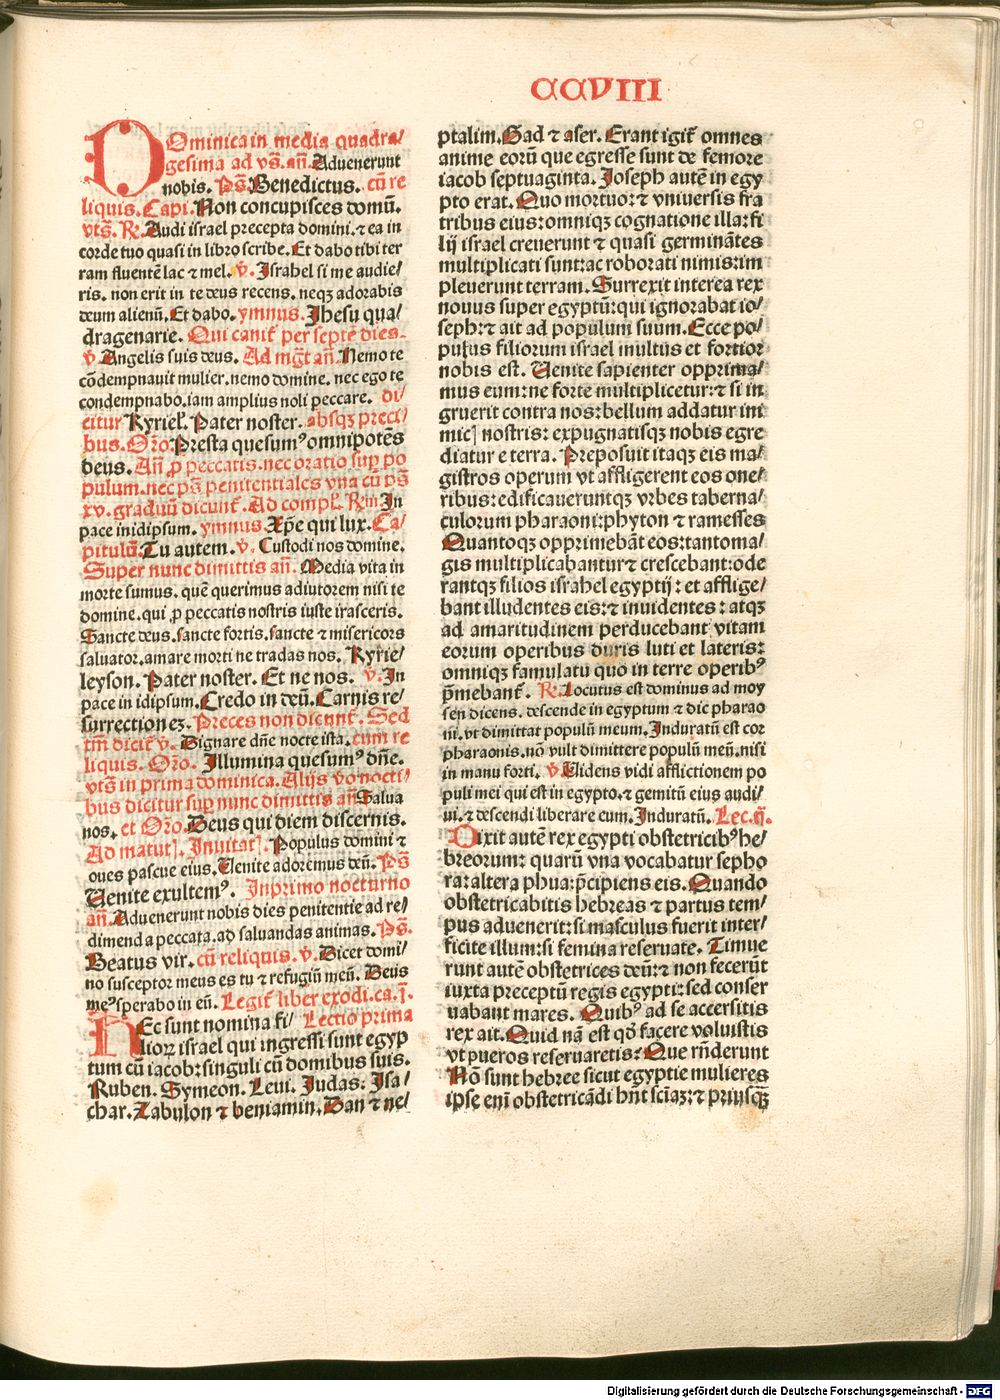 CCVIII
DOminica in media quadra/
gesima ad vꝰ. añ. Aduenerunt
nobis. Pꝰ. Benedictus. cū re
liquis. Capi. Non concupisces domū.
vtꝰ. R. Audi israel precepta domini. ⁊ ea in
corde tuo quasi in libro scribe. Et dabo tibi ter
ram fluentē lac ⁊ mel. v̄. Israhel si me audie/
ris. non erit in te deus recens. neqꝫ adorabis
deum alienū. Et dabo. ymnus. Jhesu qua/
dragenarie. Qui canit᷑ per septē dies.
v̄. Angelis suis deus. Ad mg̅t añ. Nemo te
cōdempnauit mulier. nemo domine. nec ego te
condempnabo. iam amplius noli peccare. di/
citur Kyriel. Pater noster. absqꝫ preci/
bus. Oro. Presta quesumꝰ omnipotēs
deus. Añ ꝓ peccatis. nec oratio suꝑ po
pulum. nec pꝰ penitentiales vna cū pꝰ
xv. graduū dicunt᷑. Ad compl. Rm In
pace in idipsum. ymnus. Xpē qui lux. Ca/
pitulū. Tu autem. v̄. Custodi nos domine.
Super nunc dimittis añ. Media vita in
morte sumus. quē querimus adiutorem nisi te
domine. qui ꝓ peccatis nostris iuste irasceris.
Sancte deus. sancte fortis. sancte ⁊ misericors
saluator. amare morti ne tradas nos. Kyrie/
leyson. Pater noster. Et ne nos. v̄. In
pace in idipsum. Credo in deū. Carnis re/
surrectionez. Preces non dicunt᷑. Sed
tm̄ dicit᷑ v̄. Dignare dn̄e nocte ista. cum re
liquis. Oro. Illumina quesumꝰ dn̄e.
vtꝰ in prima dominica. Alijs vo nocti/
bus dicitur suꝑ nunc dimittis añ Salua
nos. et Oro. Deus qui diem discernis.
Ad matut]. Inuitat]. Populus domini ⁊
oues pascue eius. Uenite adoremus deū. Pꝰ
Uenite exultemꝰ. In primo nocturno
añ. Aduenerunt nobis dies penitentie ad re/
dimenda peccata. ad saluandas animas. Pꝰ.
Beatus vir. cū reliquis. v̄. Dicet domi/
no susceptor meus es tu ⁊ refugiū meū. Deus
meꝰ sperabo in eū. Legit᷑ liber exodi. ca. j.
HEc sunt nomina fi/ Lectio prima
lioꝝ israel qui ingressi sunt egyp
tum cū iacob: singuli cū domibus suis.
Ruben. Symeon. Leui. Judas. Isa/
char. Zabulon ⁊ beniamin. Dan ⁊ ne/
ptalim. Gad ⁊ aser. Erant igit᷑ omnes
anime eorū que egresse sunt de femore
iacob septuaginta. Joseph autē in egy
pto erat. Quo mortuo: ⁊ vniuersis fra
tribus eius: omniqꝫ cognatione illa: fi
lij israel creuerunt ⁊ quasi germinātes
multiplicati sunt: ac roborati nimis: im
pleuerunt terram. Surrexit interea rex
nouus super egyptū: qui ignorabat io/
seph: ⁊ ait ad populum suum. Ecce po/
pulus filiorum israel multus et fortior
nobis est. Uenite sapienter opprima/
mus eum: ne forte multiplicetur: ⁊ si in
gruerit contra nos: bellum addatur ini
mic] nostris: expugnatisqꝫ nobis egre
diatur e terra. Preposuit itaqꝫ eis ma/
gistros operum vt affligerent eos one/
ribus: edificaueruntqꝫ vrbes taberna/
culorum pharaoni: phyton ⁊ ramesses
Quantoqꝫ opprimebāt eos: tanto ma/
gis multiplicabantur ⁊ crescebant: ode
rantqꝫ filios israhel egyptij: et afflige/
bant illudentes eis: ⁊ inuidentes: atqꝫ
ad amaritudinem perducebant vitam
eorum operibus duris luti et lateris:
omniqꝫ famulatu quo in terre operibꝰ
p̄mebant᷑. R. Locutus est dominus ad moy
sen dicens. descende in egyptum ⁊ dic pharao
ni. vt dimittat populū meum. Induratū est cor
pharaonis. nō vult dimittere populū meū. nisi
in manu forti. v̄. Uidens vidi afflictionem po
puli mei qui est in egypto. ⁊ gemitū eius audi/
ui. ⁊ descendi liberare eum. Induratū. Lec. ij.
Dixit autē rex egypti obstetricibꝰ he/
breorum: quarū vna vocabatur sepho
ra: altera phua: p̄cipiens eis. Quando
obstetricabitis hebreas ⁊ partus tem/
pus aduenerit: si masculus fuerit inter/
ficite illum: si femina reseruate. Timue
runt autē obstetrices deū: ⁊ non fecerūt
iuxta preceptū regis egypti: sed conser
uabant mares. Quibꝰ ad se accersitis
rex ait. Quid nā est qd̄ facere voluistis
vt pueros reseruaretis? Que rn̄derunt
Nō sunt hebree sicut egyptie mulieres
ipse enī obstetricādi hn̄t sciaꝫ: ⁊ priusqꝫ
Digitalisierung gefördert durch die Deutsche Forschungsgemeinschaft - DFG